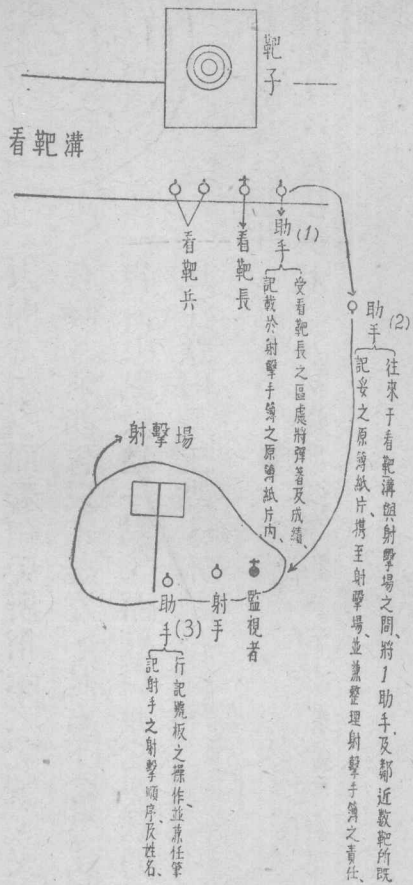 靶子
看靶溝
看靶兵
看靶長
助手(1)
受看靶長之區處將彈著及成績、
記載於射擊手簿之原簿紙片內、
助手(2)
往來于看靶溝與射擊場之間、將1助手及鄰近数靶所既
記妥之原簿紙片、携至射擊場、並兼整理射擊手簿之責任、
射擊場
監視者
射手
助手(3)
行記號板之操作、並兼任筆
記射手之射擊順序及姓名、